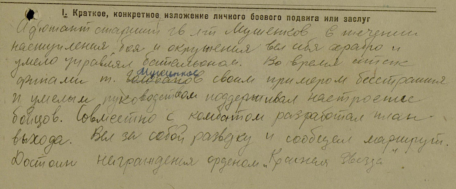 I. Краткое, конкретное изложение личного боевого подвига или заслуг
Адютант старший гв л-т Мушенков в течении
наступления, боя и окружения вел себя храбро и
умело управлял батальоном. Во время
т. Мушенков своим примером бесстрашия
и умелым руководством поддерживал настроение
бойцов. Совместно с комбатом разработал план
выхода. Вел за собой разведку и сообщал маршрут.
Достоин награждения орденом „Красная Звезда".